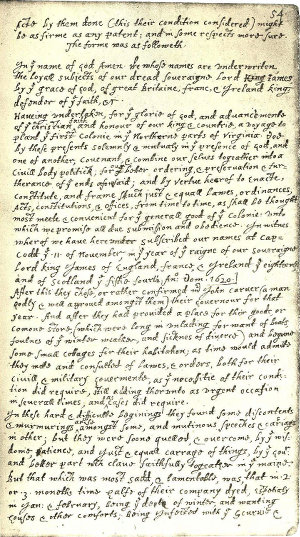 54
facte by them done (this their condition considered) might
be as firme as any patent; and in some respects more sure.
The forme was as followeth.
In yͤ name of god Amen. We whose names are underwriten,
the loyall subjects of our dread soveraigne Lord King James
by yͤ grace of god, of great Britaine, franc, & Ireland king,
defender of yͤ faith, &c.
Haveing undertaken, for yͤ glorie of god, and advancemente
of yͤ christian faith and honour of our king & countrie, a voyage to
plant yͤ first colonie in yͤ Northerne parts of Virginia· Doe
by these presents solemnly & mutualy in yͤ presence of god, and
one of another, covenant, & combine our selves togeather into a
Civill body politick; for yͤ better ordering, & preservation & fur-
therance of yͤ ends aforesaid; and by vertue hearof to enacte,
constitute, and frame shuch just & equall Lawes, ordinances,
Acts, constitutions, & offices, from time to time, as shall be thought
most meete & convenient for yͤ generall good of yͤ colonie: unto
which we promise all due submission and obedience. In witnes
wherof we have hereunder subscribed our names at Cap-
Codd yͤ ·11· of November, in yͤ year of yͤ raigne of our soveraigne
Lord king James of England, france, & Ireland yͤ eighteenth
and of Scotland yͤ fiftie fourth. Ano: Dom ·1620·|
After this they chose, or rather confirmed mr John Carver (a man
godly & well aprouved amongst them) their Governour for that
year. And after they had provided a place for their goods, or
comone store, (which were long in unlading for want of boats,
foulnes of yͤ winter weather, and sicknes of diverce) and begune
some small cottages for their habitation; as time would admitte
they mette and consulted of lawes, & orders, both for their
civill & military Govermente, as yͤ necessitie of their condi-
tion did require, still adding therunto as urgent occasion
in severall times, and as cases did require.
In these hard & difficulte beginings they found some discontents
& murmurings arise amongst some, and mutinous speeches & carriags
in other; but they were soone quelled, & overcome, by yͤ wis-
dome, patience, and just & equall carrage of things, by yͤ Govr
and better part wch clave faithfully togeather in yͤ maine.
But that which was most sadd, & lamentable, was, that in ·2·
or ·3· moneths time halfe of their company dyed, espetialy
in Jan: & february, being yͤ depth of winter, and wanting
houses & other comforts; being Infected with yͤ Scurvie &